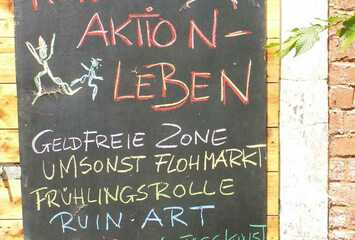 AKTION-
LEBEN
GELDFREIE ZONE
UMSONST FLOHMARKT
FRÜHLINGSROLLE
RUIN·ART